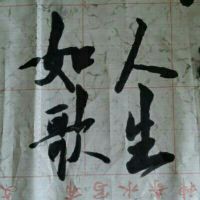 人生
如歌